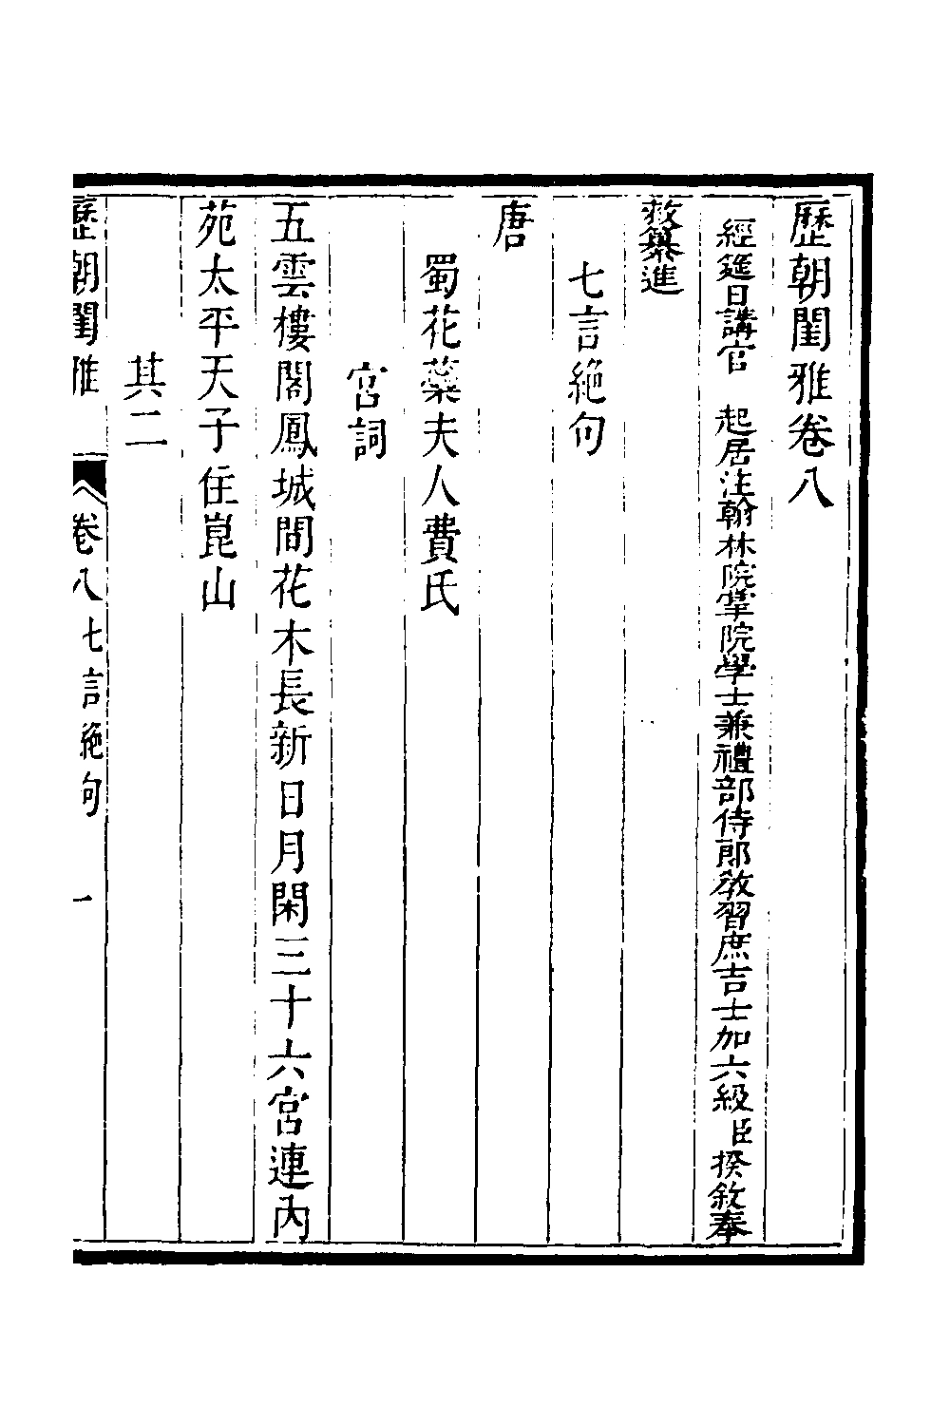 歷朝閨雅卷八
經筵日講官　起居注翰林院掌院學士兼禮部侍郎教習庶吉士加六級臣揆敘奉
敕纂進
七言絶句
唐
蜀花蘂夫人費氏
宮詞
五雲樓閣鳳城間花木長新日月閑三十六宮連內
苑太平天子住崑山
其二
歷朝閨雅　卷八七言絶句　一